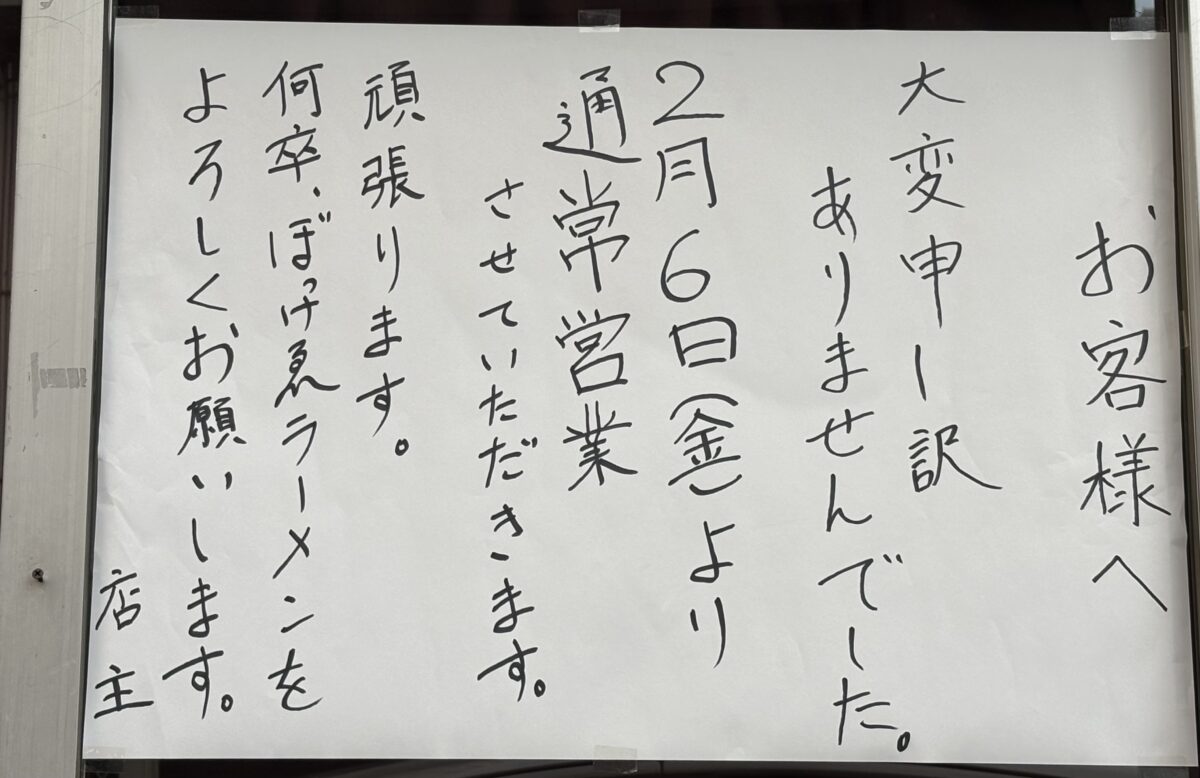 お客様へ
大変申し訳
ありませんでした。
2月6日(金)より
通常営業
させていただきます。
頑張ります。
何卒、ぼっけゑラーメンを
よろしくお願いします。
店主